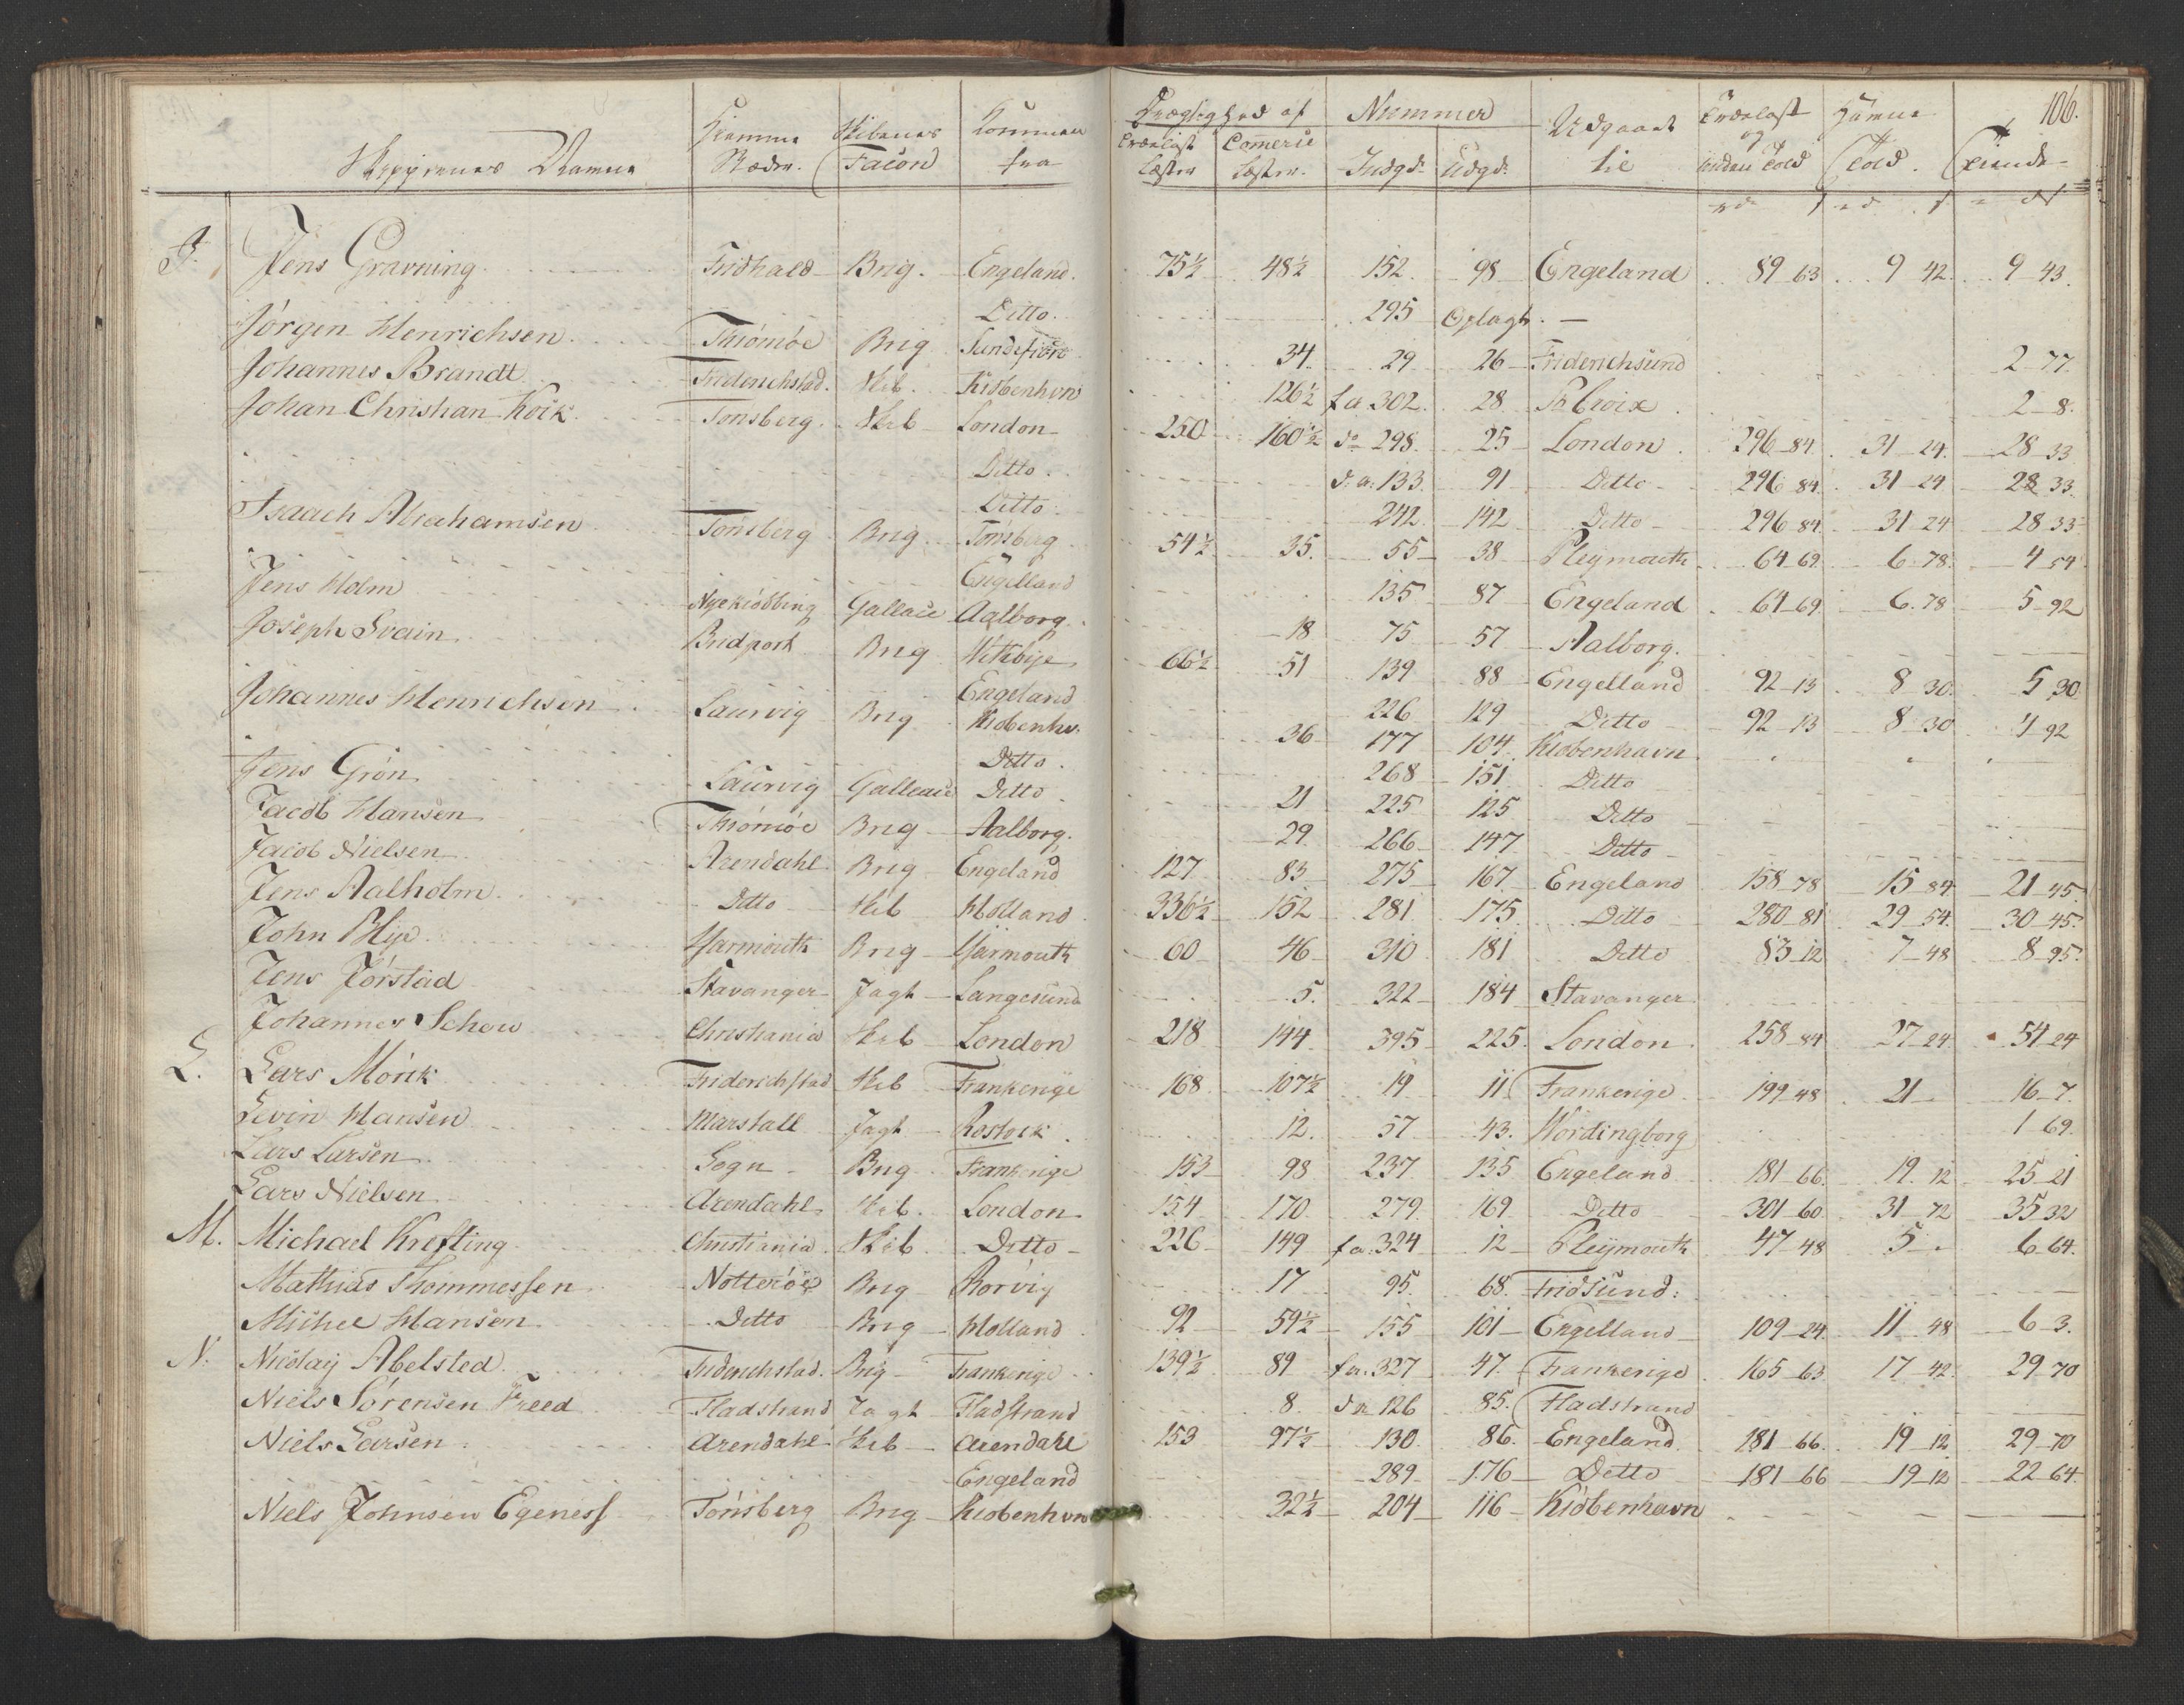 106.
Skippernes Nafne | Hiemme Stæder. | Skibenes Facon | Kommen fra | Drægtighed af Trælast Læster | Comerce Læster. | Nummer Indgd. | Udgd: | Udgaaet til | Trælast og anden Told | Hafne Told.
J. Jens Gravning | Fridhald | Brig. | Engeland. | 75½ | 48½ | 152. | 98 | Engeland | 89 63 | 9 42. | 9 43.
Ditto. | 295 | Oplagt.
Jørgen Henrichsen | Thiømøe | Brig | Sandefiøn | 34. | 29 | 26 | Friderichsund | 2 77.
Johannes Brandt | Friderichstad. | Skib. | Kiøbenhvn | 126½ | fa 302. | 28 | St Croix | 2 8.
Johan Christian Kock | Tønsberg. | Skib | London | 250 | 160½ | do 298. | 25 | London | 296 84. | 31 24. | 28 33
Ditto. | d: a: 133. | 91 | Ditto | 296 84. | 31 24 | 28 33.
Ditto. | 242 | 142 | Ditto | 296 84. | 31 24 | 28 33
Isaach Abrahamsen | Tønsberg | Brig | Tønsberg | 54½ | 35. | 55 | 38 | Pleymouth | 64 69. | 6 78. | 4 54.
Engelland | 135 | 87 | Engeland | 64 69. | 6. 78 | 5 92
Jens Holm | Nyekiøbbing | Galleace | Aalborg. | 18 | 75 | 57 | Aalborg.
Joseph Svain | Bridport | Brig | Witbye | 66½ | 51 | 139 | 88 | Engelland | 92 13 | 8 30. | 5 30
Engeland | 226 | 129 | Ditto | 92 13 | 8 30 | 4 92
Johannes Henrichsen | Laurvig | Brig | Kiøbenhv. | 36 | 177 | 104. | Kiøbenhavn
Ditto. | 268 | 151 | Ditto
Jens Grøn | Laurvig | Galleace | Ditto | 21 | 225 | 125 | Ditto
Jacob Hansen | Thiømøe | Brig | Aalborg. | 29. | 266 | 147 | Ditto
Jacob Nielsen | Arendahl | Brig | Engeland | 127. | 83 | 275 | 167. | Engeland | 158 78 | 15 84. | 21 45.
Jens Aalholm | Ditto | Skib | Holland | 336½ | 152 | 281 | 175 | Ditto | 280 81 | 29 54. | 30 45.
John Blip. | Yarmouth | Brig | Yarmouth | 60 | 46 | 310 | 181 | Ditto | 83 12 | 7 48 | 8 95.
Jens Jørstad | Stavanger | Jagt | Langesund | 5. | 322 | 184 | Stavanger
Johannes Schow | Christiania | Skib | London | 218 | 144 | 395 | 225. | London | 258 84 | 27 24. | 54 24
L. Lars Mörik | Friderichstad | Skib | Frankerige | 168 | 107½ | 19 | 11 | Frankerige | 199 48 | 21 | 16 7.
Levin Hansen | Marstall | Jagt | Rostock | 12. | 57 | 43. | Wordingborg | 1 69.
Lars Larsen | Sogn | Brig | Frankerige | 153 | 98 | 237. | 135 | Engeland | 181 66. | 19. 12 | 25 21
Lars Nielsen | Arendahl | Skib. | London | 154 | 170 | 279. | 169. | Ditto | 301 60. | 31 72 | 35 32
M. Michael Krefting | Christiania | Skib | Ditto | 226 | 149 | fa. 324 | 12 | Pleymouth | 47 48 | 5 | 6 64.
Mathias Thommessen | Notterøe | Brig | Rorvig | 17 | 95. | 68. | Fridsund.
Michel Hansen | Ditto | Brig | Holland | 92 | 59½ | 155 | 101 | Engelland | 109 24. | 11 48 | 6 3.
N. Nicolay Abelsted | Friderichstad. | Brig | Frankerige | 139½ | 89 | fa. 327 | 47. | Frankerige | 165 63 | 17 42. | 29 70
Niels Sørensen Freed | Fladstrand | Jagt | Fladstrand | 8. | da 126 | 85. | Fladstrand
Niels Larsen | Arendahl | Skib | Arendahl | 153 | 97½ | 130. | 86. | Engeland | 181 66. | 19 12 | 29 70
Engeland | 289 | 176 | Ditto | 181 66 | 19 12 | 22 64.
Niels Johnsen Egeness | Tønsberg | Brig | Kiøbenhvn | 32½ | 204 | 116 | Kiøbenhavn